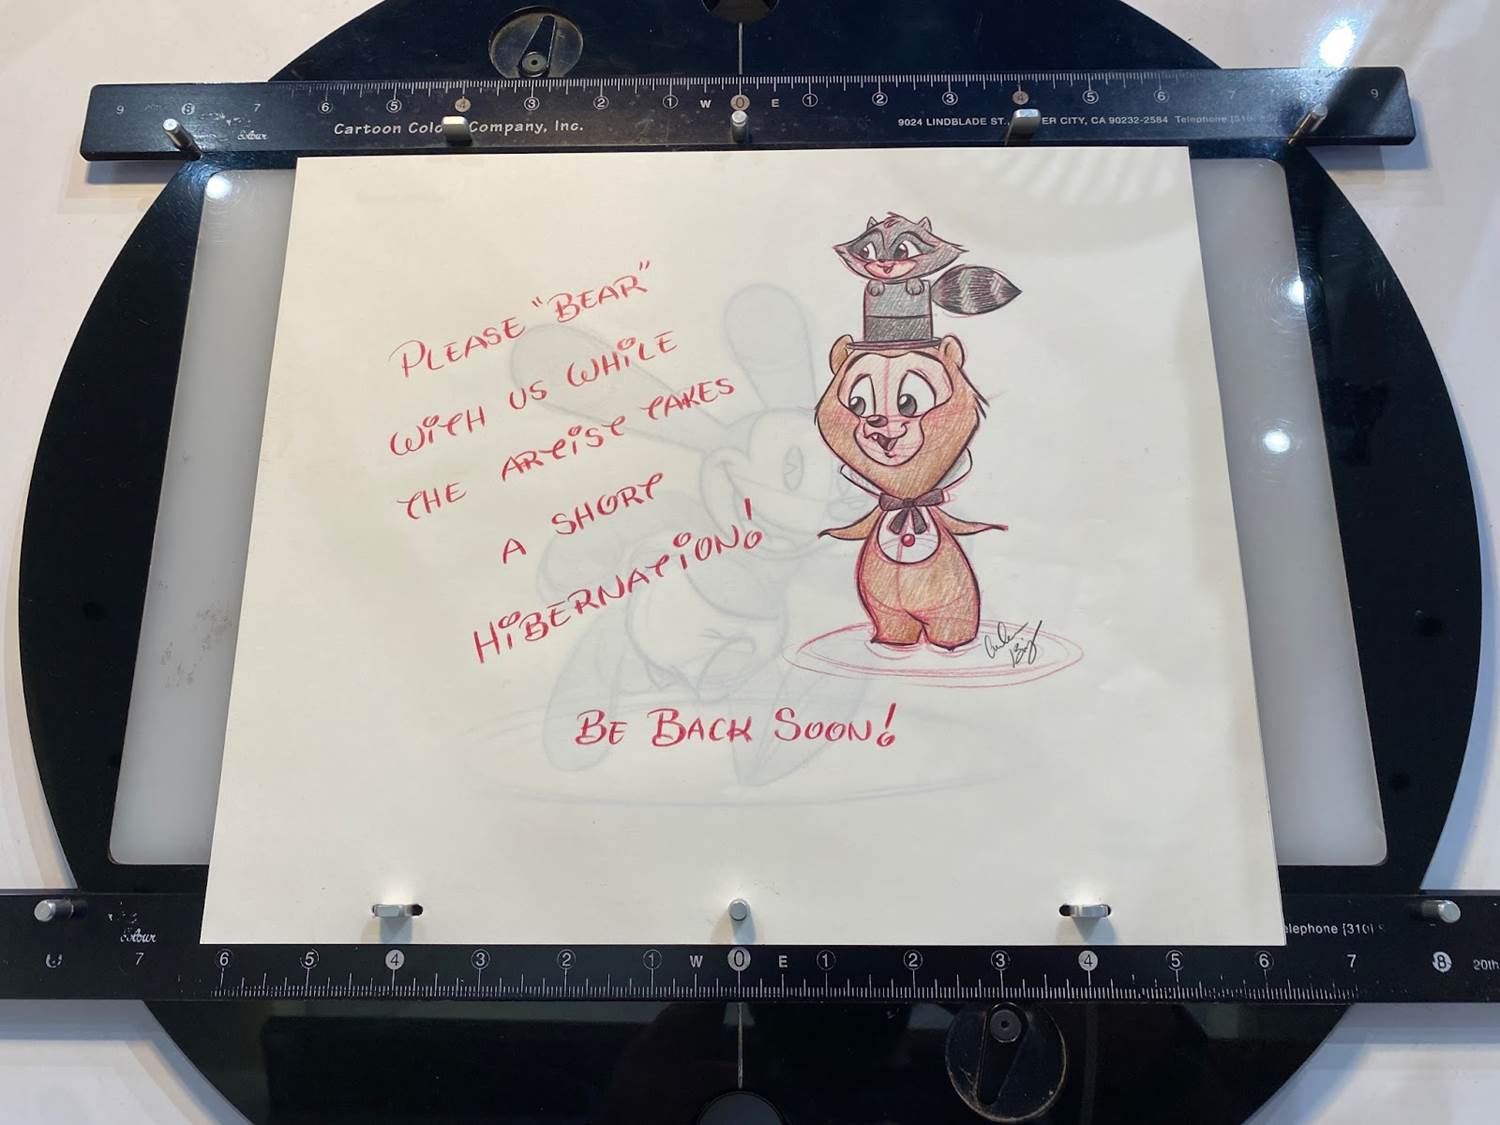 9 8 7 6 5 4 3 2 1 W 0 E 1 2 3 4 5 6 7 9
Cartoon Colo Company, Inc. 9024 LINDBLADE ST., ER CITY, CA 90232-2584 Telephone [310]
PLEASE "BEAR"
WITH US WHILE
THE ARTIST TAKES
A SHORT
HIBERNATION!
BE BACK SOON!
elephone [310]
7 6 5 4 3 2 1 W 0 E 1 2 3 4 5 6 7 8 20th